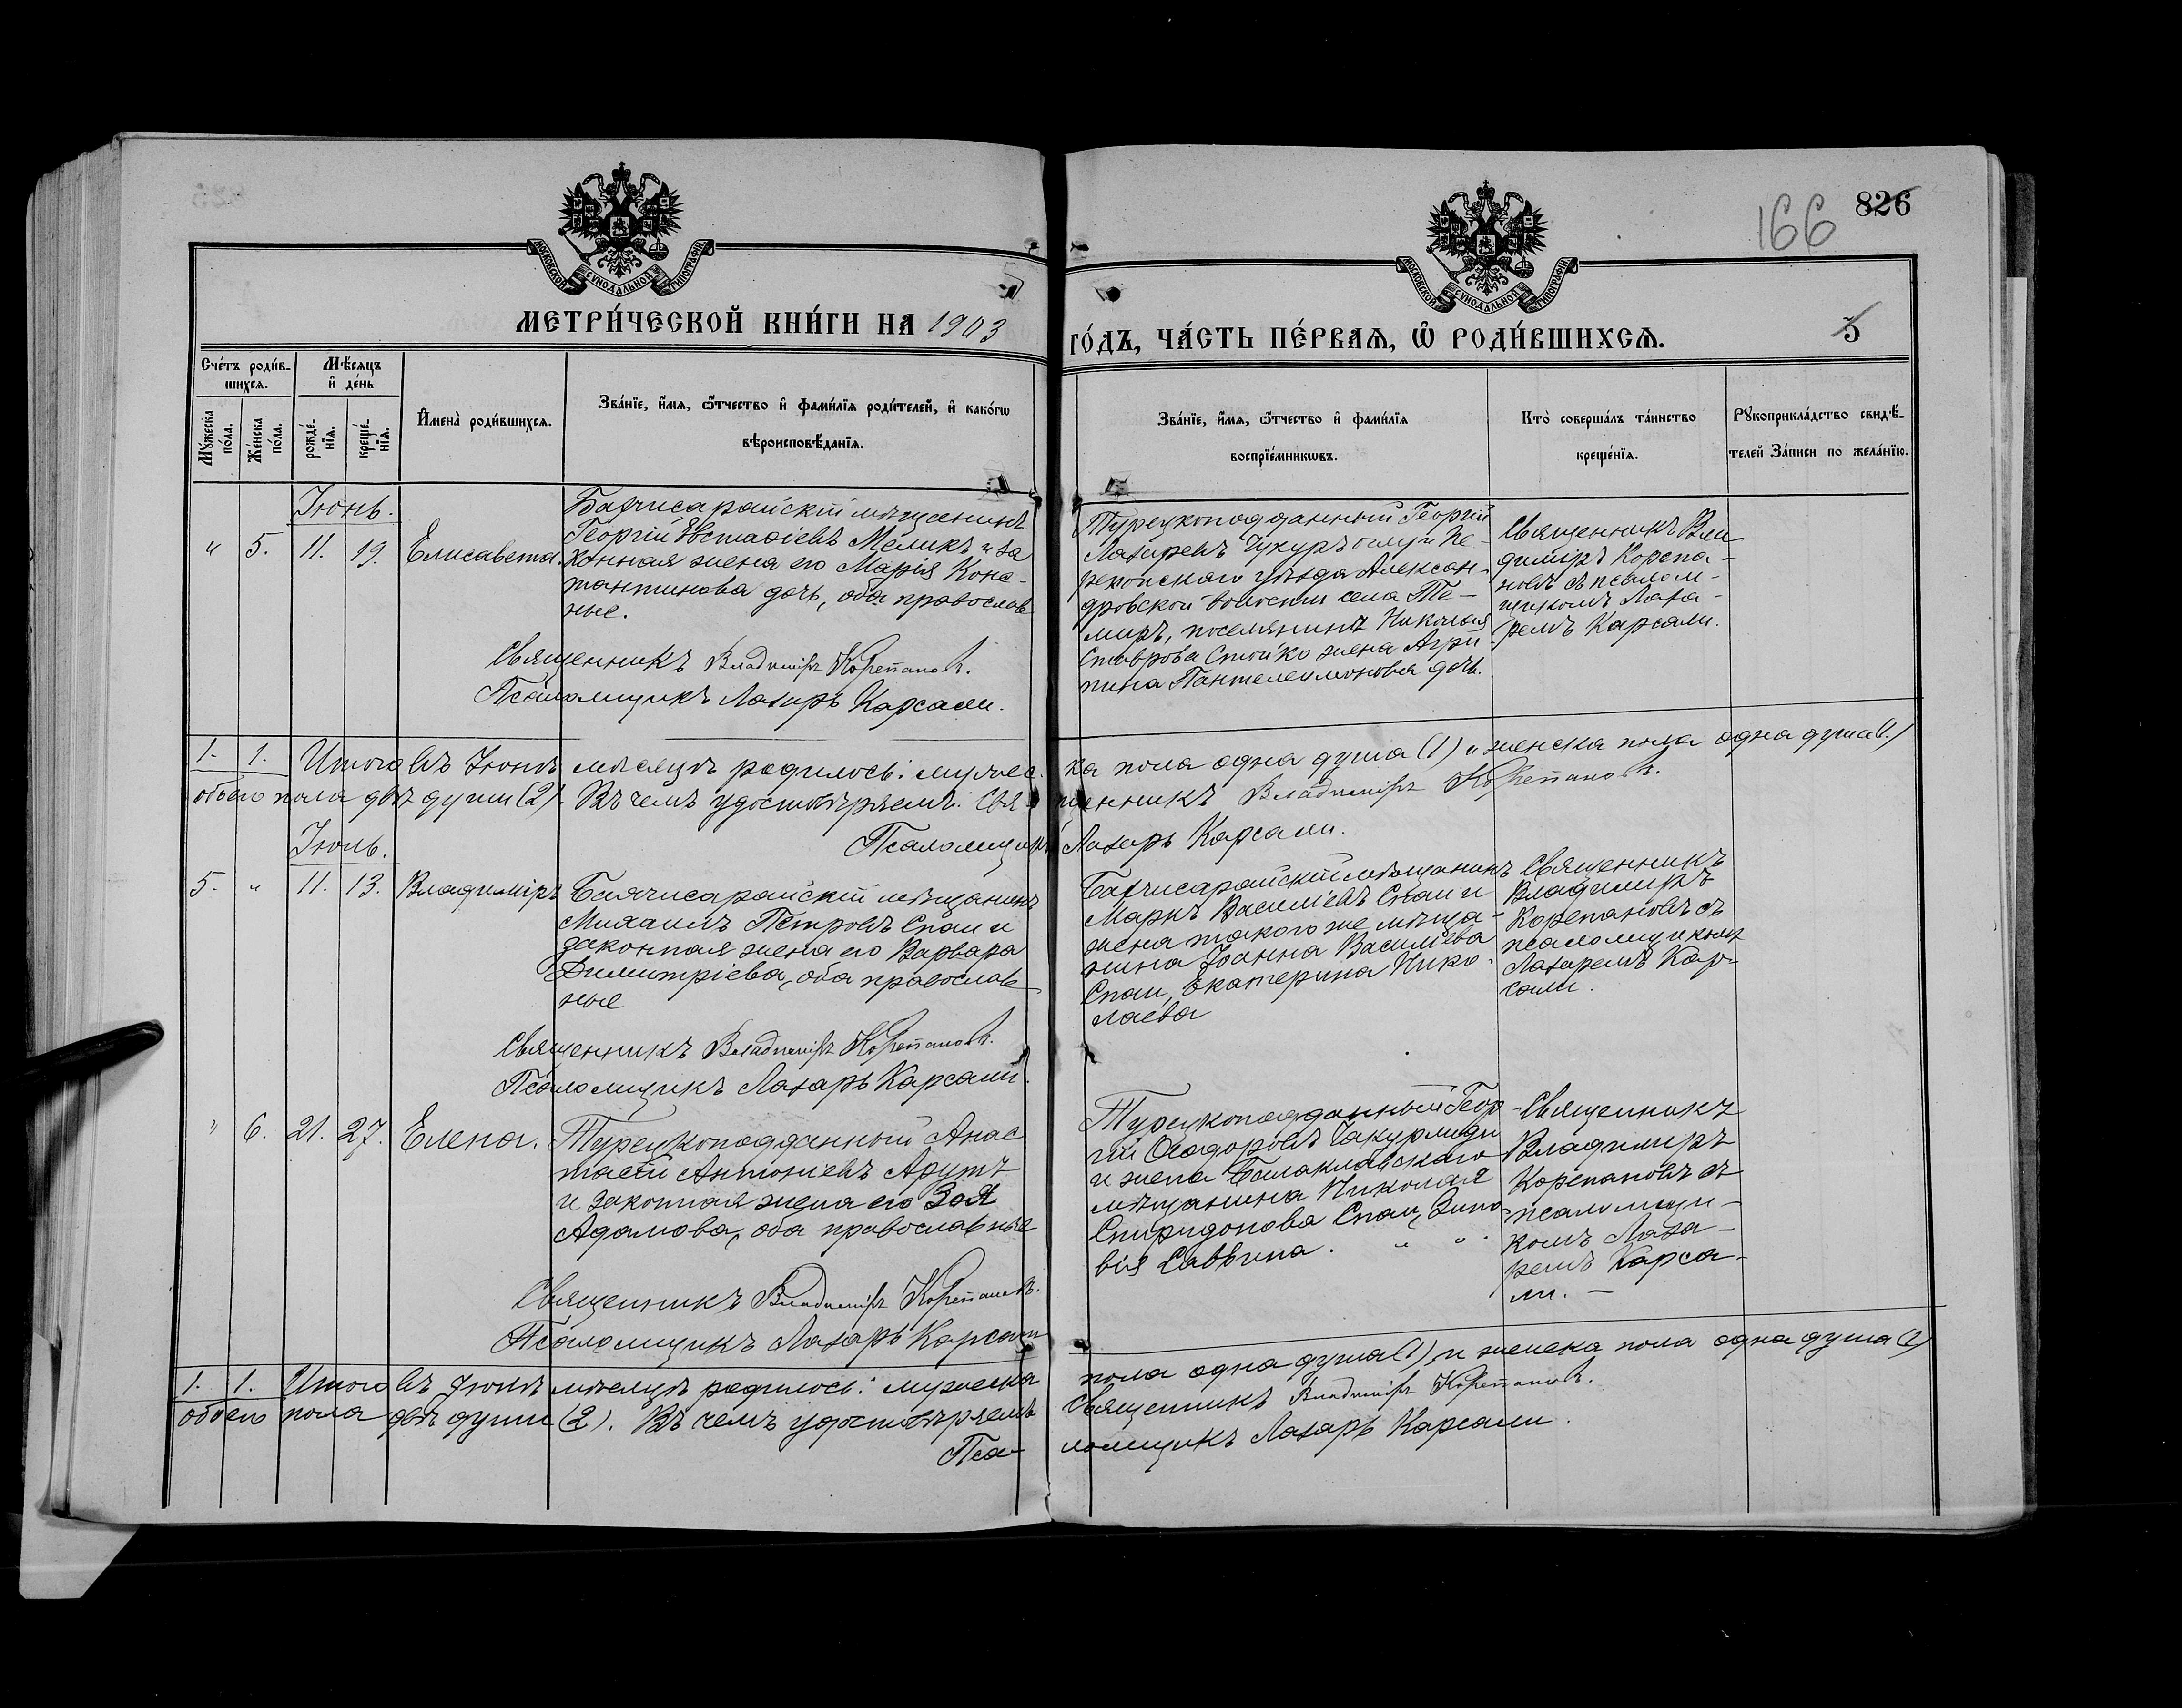 166 826
МОСКОВСКОЙ СУНОДАЛЬНОЙ ТИПОГРАФІИ
МОСКОВСКОЙ СУНОДАЛЬНОЙ ТИПОГРАФІИ
МЕТРИ́ЧЕСКОЙ КНИ́ГИ НА 1903
ГО́ДЪ, ЧА́СТЬ ПЕ́РВАѦ, Ѡ҆ РОДИ́ВШИХСѦ.
5
Сче́тъ роди́в-
шихсѧ.
Мѣ́сѧцъ
и҆ де́нь
Мꙋ́жеска
по́ла.
Же́нска
по́ла.
рожде́-
нїѧ.
креще́-
нїѧ.
И҆мена̀ роди́вшихсѧ.
Зва́нїе, и҆́мѧ, ѻ҆́тчество и҆ фами́лїѧ роди́телей, и҆ како́гѡ
вѣроисповѣ́данїѧ.
Зва́нїе, и҆́мѧ, ѻ҆́тчество и҆ фами́лїѧ
воспрїе́мникѡвъ.
Кто̀ соверша́лъ та́инство
креще́нїѧ.
Рꙋкоприкла́дство свидѣ́-
телей За́писи по жела́нїю.
Іюнь.
" 5. 11. 19. Елисавета.
Бахчисарайскій мѣщанинъ
Георгій Евстафіевъ Меликъ и за
конная жена его Марія Конс-
тантинова дочь, оба православ
ные.
Священникъ Владиміръ Корепановъ.
Псаломщикъ Лазарь Карсали.
Турецкоподданный Георгій
Лазаревъ Чукуръ оглу и Пе-
рекопскаго уѣзда Алексан-
дровской волости села Те-
миръ, поселянина Николая
Ставрова Стойко жена Агри-
пина Пантелеимонова дочь.
Священникъ Вла
диміръ Корепа-
новъ съ псалом-
щикомъ Лаза-
ремъ Карсали.
1. 1. Итого въ Іюнѣ мѣсяцѣ родилось: мужес-
ка пола одна душа (1) и женска пола одна душа (1)
обоего пола двѣ души (2). Въ чемъ удостовѣряемъ: Свя-
щенникъ Владиміръ Корепановъ.
Псаломщикъ Лазарь Карсали.
Іюль.
5. " 11. 13. Владиміръ
Бахчисарайскій мѣщанинъ
Михаилъ Петровъ Спаи и
законная жена его Варвара
Димитріева, оба православ-
ные
Священникъ Владиміръ Корепановъ.
Псаломщикъ Лазарь Карсали.
Бахчисарайскій мѣщанинъ
Маркъ Василіевъ Спаи и
жена такого же мѣща-
нина Іоанна Василіева
Спаи, Екатерина Нико-
лаева
Священникъ
Владимиръ
Корепановъ съ
псаломщикомъ
Лазаремъ Кар-
сали.
" 6. 21. 27. Елена.
Турецкоподданный Анас
тасій Антоніевъ Арутъ
и законная жена его Зоя
Адамова, оба православные
Священникъ Владиміръ Корепановъ.
Псаломщикъ Лазарь Карсали
Турецкоподданный Геор-
гій Ѳеодоровъ Чакурмиди
и жена Балаклавскаго
мѣщанина Николая
Спиридонова Спаи, Зино-
вія Саввина. " "
Священникъ
Владимиръ
Корепановъ съ
псаломщи-
комъ Лаза-
ремъ Карса-
ли. —
1. 1. Итого въ Іюлѣ мѣсяцѣ родилось: мужеска
пола одна душа (1) и женска пола одна душа (1)
обоего пола двѣ души (2). Въ чемъ удостовѣряемъ
Священникъ Владиміръ Корепановъ.
Пса-
ломщикъ Лазарь Карсали.